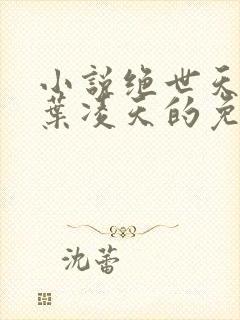 小说绝世天
葉凌天的免
沈蕾